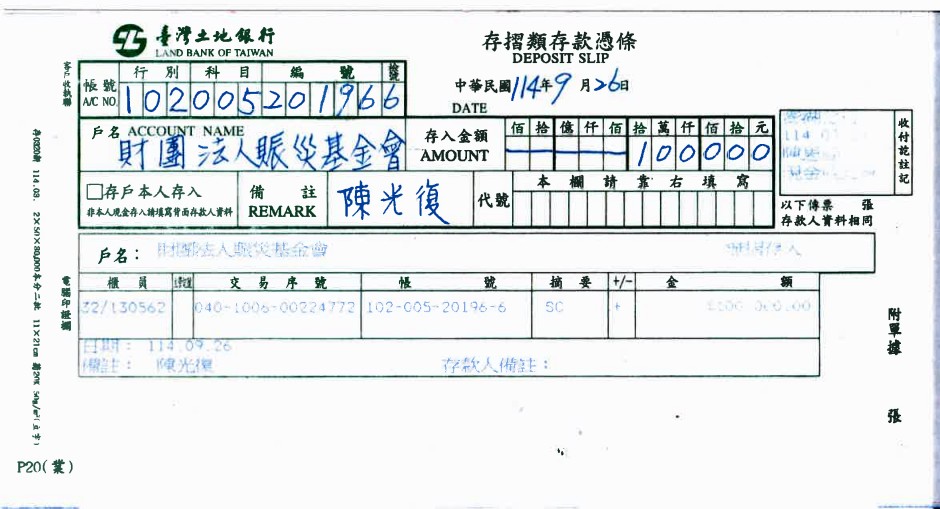 臺灣土地銀行
LAND BANK OF TAIWAN
存摺類存款憑條
DEPOSIT SLIP
中華民國 114年 9月 26日
DATE
客戶收執聯
帳號 A/C NO. 行別 科目 編號 檢號
102005201966
戶名 ACCOUNT NAME
財團法人賑災基金會
存入金額 AMOUNT
佰 拾 億 仟 佰 拾 萬 仟 佰 拾 元
100000
收付訖註記
□存戶本人存入
非本人現金存入請填寫背面存款人資料
備註 REMARK
陳光復
代號
本欄請靠右填寫
以下傳票 張
存款人資料相同
戶名：財團法人賑災基金會
櫃員 交易序號 帳號 摘要 +/- 金額
32/130562 040-1006-00224772 102-005-20196-6 SC +
日期： 114.09.26
備註： 陳光復 存款人備註：
電腦印證欄
附單據 張
P20(業)